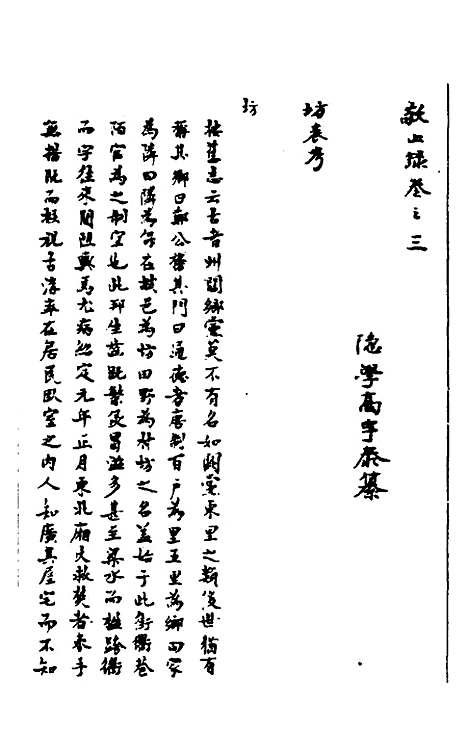 敬止録卷之三
隐學高宇泰纂
坊表考
坊
按舊志云古者州閭鄉黨莫不有名如闕黨東里之類後世猶有
稱其鄉曰鄭公舊其門曰通德者唐制百戶為里五里為鄉四家
為隣四隣為保在城邑為坊田野為村坊之名盖始于此街衢巷
陌官為之制宜也此邦生齒既繁侵冒滋多甚至梁水而楹跨衢
而宇往來閒阻輿馬尤病紹定元年正月東北廂火救焚者束手
無措既而教視古溝率在居民臥室之内人知廣其屋宅而不知